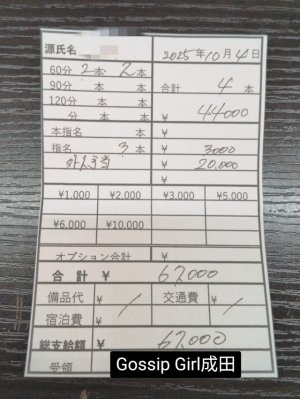 源氏名
2025年10月4日
60分 2本 2 本
90分 本 本 合計 4 本
120分 本 本 ¥ 44000
分 本 本 ¥
本指名 本 ¥
指名 3 本 ¥ 3000
外人手当 ¥ 20,000
¥1,000 ¥2,000 ¥3,000 ¥5,000
¥6,000 ¥10,000
オプション合計 ¥
合計 ¥ 67,000
備品代 ¥ / 交通費 ¥ /
宿泊費 ¥
総支給額 ¥ 67,000
受領
Gossip Girl成田